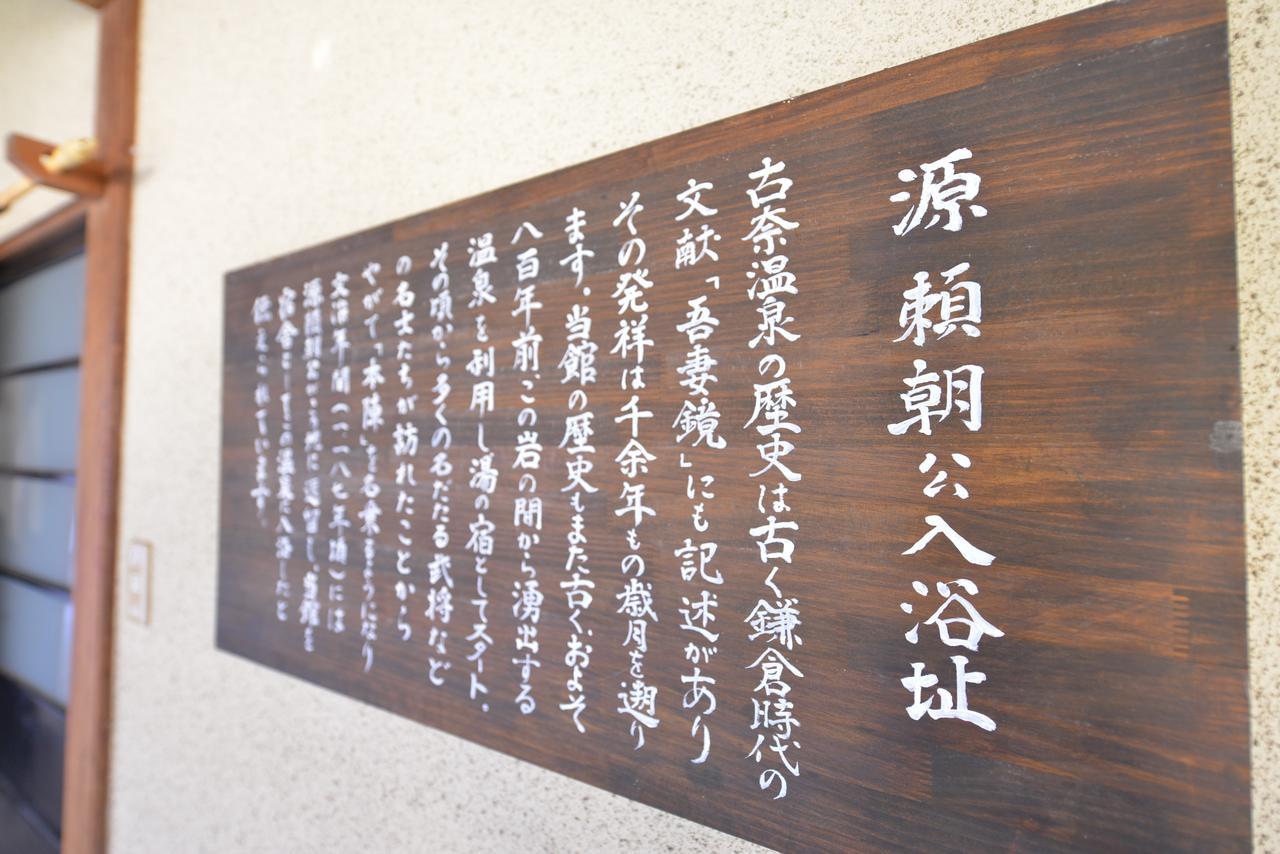 源頼朝公入浴址
古奈温泉の歴史は古く鎌倉時代の
文献「吾妻鏡」にも記述があり
その発祥は千余年もの歳月を遡り
ます。当館の歴史もまた古く、およそ
八百年前、この岩の間から湧出する
温泉を利用し湯の宿としてスタート。
その頃から多くの名だたる武将など
の名士たちが訪れたことから
やがて「本陣」を名乗るようになり
文治年間(一一八七年頃)には
源頼朝公がこの地に逗留し、当館を
宿舎としてこの温泉に入浴したと
伝えられています。